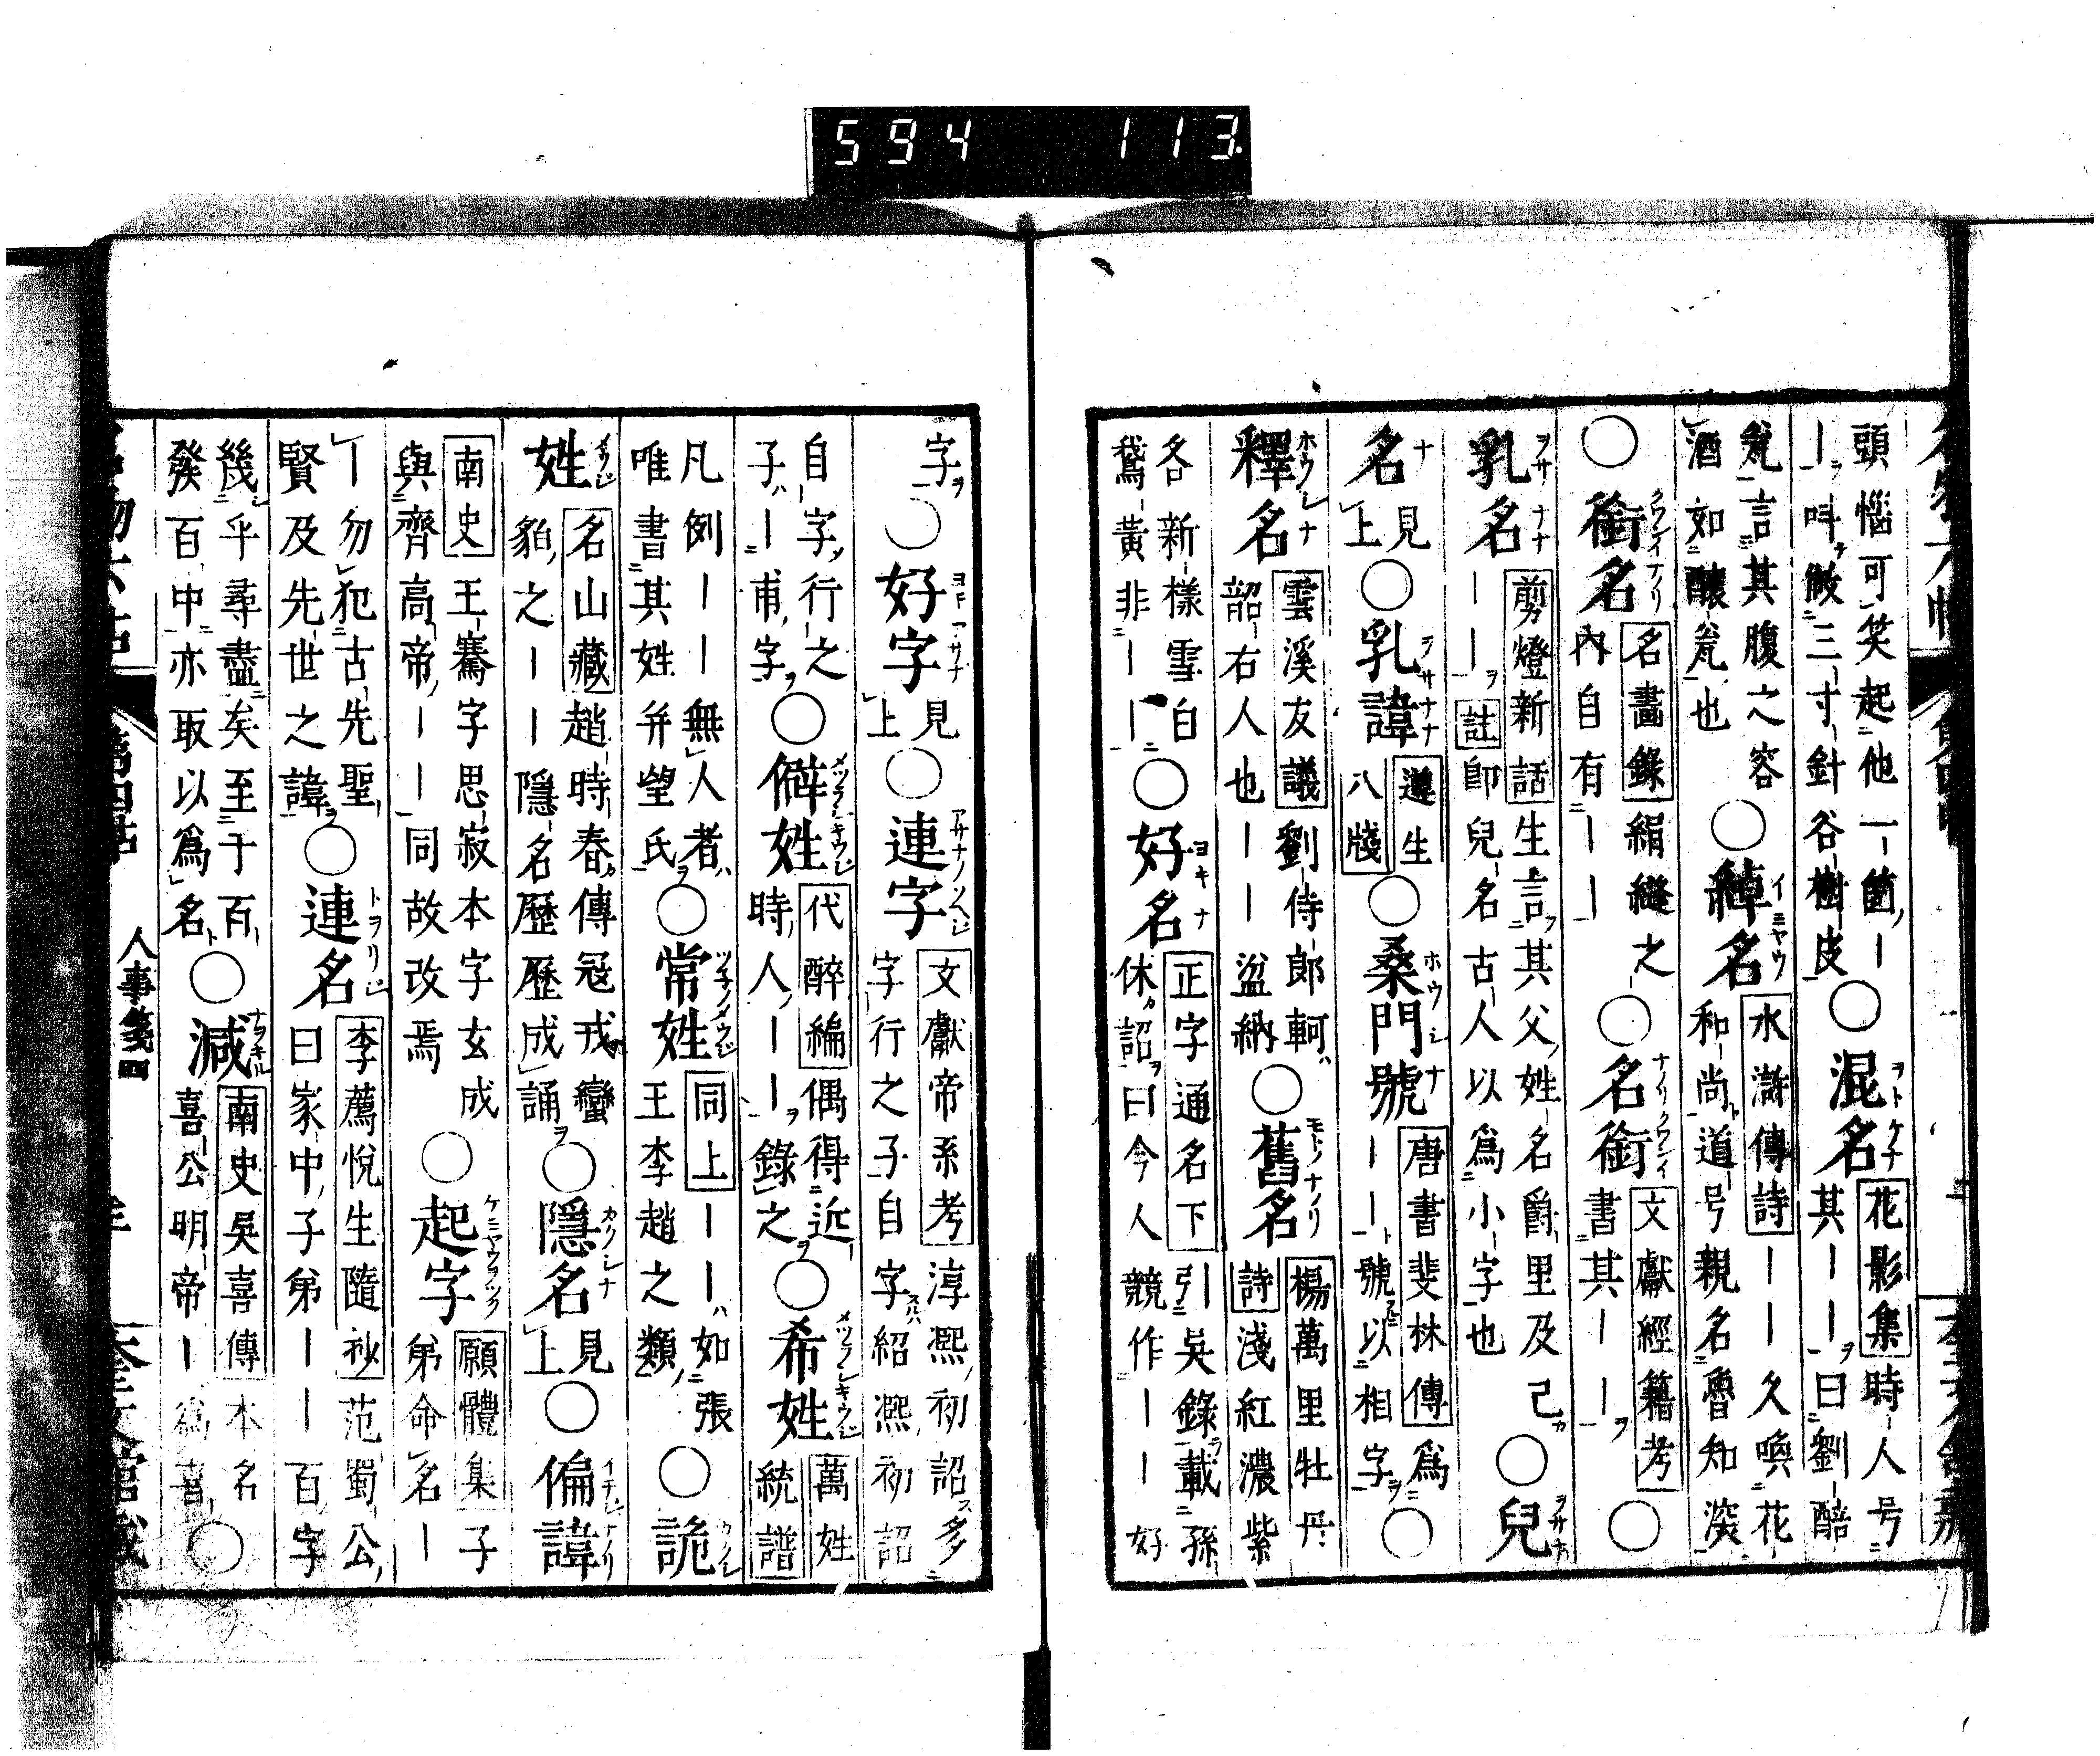 594 113
頭惱可笑起他一箇ー〇混名花影集時人号
ー叫做三寸針谷樹皮其ーー曰劉醅
瓮言其腹之容
酒如釀瓮也〇綽名水滸傳詩ーー久喚花
和尚道号親名魯知深
〇銜名名畫錄絹縫之
內自有ーー〇名銜文獻經籍考
書其ーー〇
乳名剪燈新話生言其父姓名爵里及己
ーー註即兒名古人以爲小字也〇兒
名見上〇乳諱遵生八牋〇桑門號唐書裴林傳爲
ーーー號以相字〇
釋名雲溪友議劉侍郎軻
韶右人也ーー盆納〇舊名楊萬里牡丹
詩淺紅濃紫
各新樣雪白
鵞黃非ーー〇好名正字通名下引吳錄載孫
休詔曰今人競作ーー好
字〇好字見上〇連字文獻帝系考淳熙初詔多
字行之子自字紹熙初詔
自字行之
子ー甫字〇僻姓代醉編偶得近
時人ーー錄之〇希姓萬姓
統譜
凡例ーー無人者
唯書其姓并望氏〇常姓同上ーー如張
王李趙之類〇詭
姓名山藏趙時春傳冦戎蠻
貊之ーー隱名歷歷成誦〇隱名見上〇偏諱
南史王騫字思寂本字玄成
與齊高帝ーー同故改焉〇起字願體集子
弟命名ー
ー勿犯古先聖
賢及先世之諱〇連名李薦悅生隨抄范蜀公
曰家中子弟ーー百字
幾乎尋盡矣至于百
發百中亦取以爲名〇減南史吳喜傳本名
喜公明帝ー爲喜〇
人事箋四